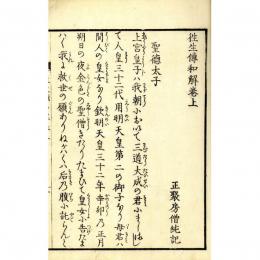 徃生傳和解卷上
正聚房僧純記
聖德太子
上宮皇子ハ我朝小おいて三道大成の君小まします
て人皇三十二代用明天皇第二の御子なり母君ハ
間人の皇女なり欽明天皇三十二年辛卯乃正月
朔日の夜金色の聖僧きたりたまひて皇女小告たまは
ハく我に救世の願ありねがハくハ后乃腹小託らんと